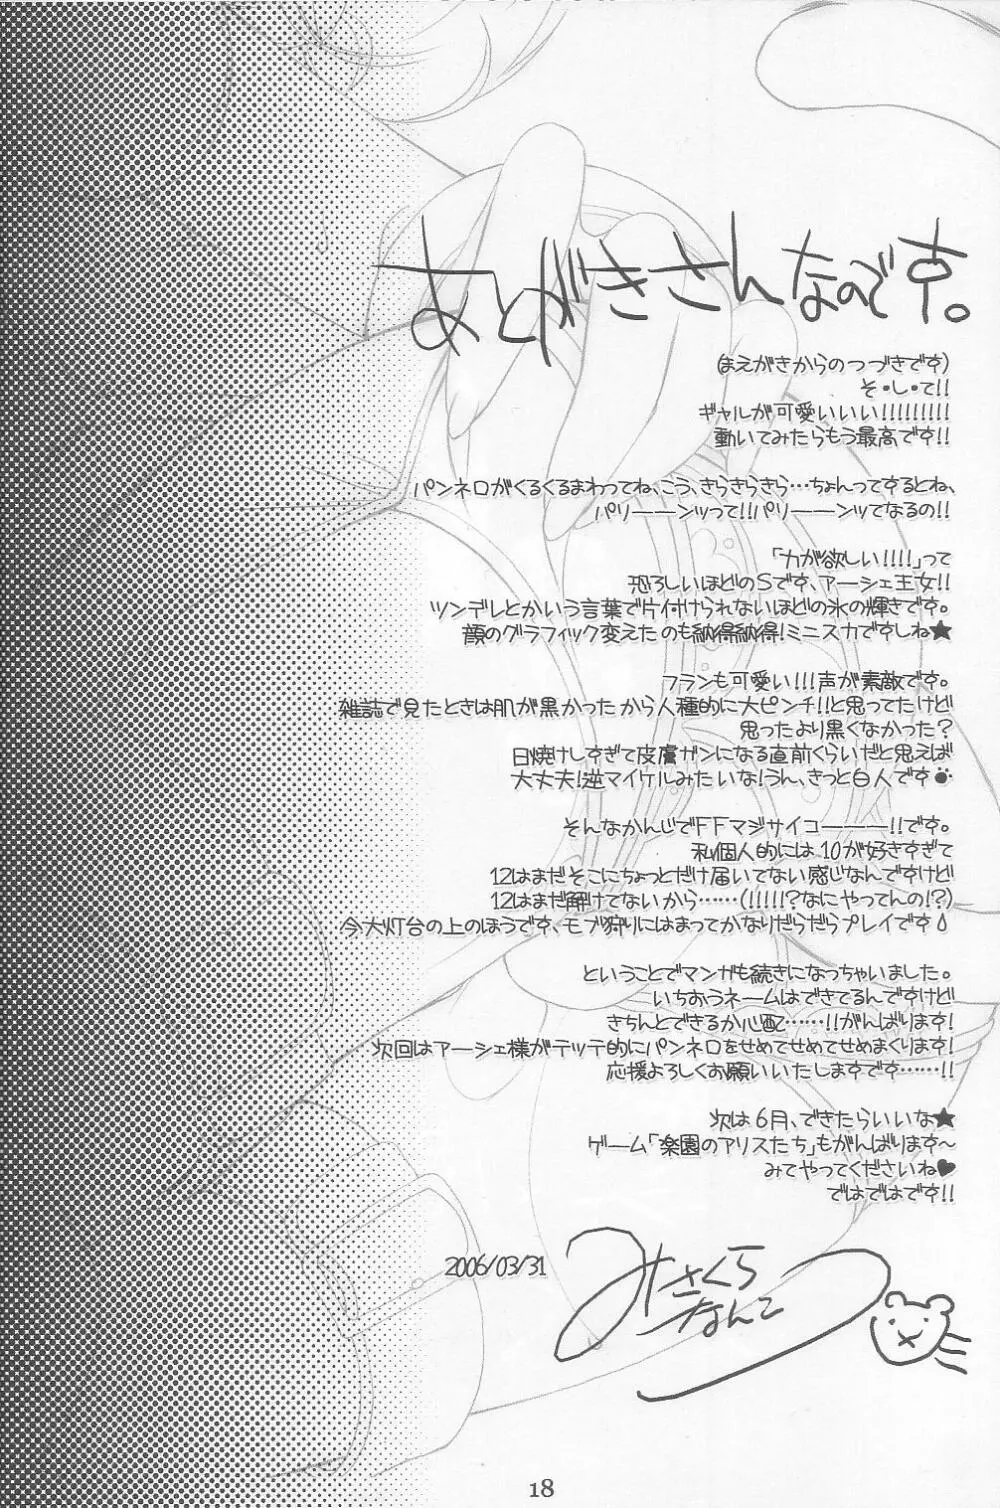 あとがきさんなのです。
(まえがきからのつづきです)
そ・し・て!!
ギャルが可愛いいい!!!!!!!!!
動いてみたらもう最高です!!
パンネロがくるくるまわってね、こう、きらきらきら…ちょんってするとね、
パリーーーンッって!!パリーーーンッてなるの!!
「力が欲しい!!!!」って
恐ろしいほどのSです、アーシェ王女!!
ツンデレとかいう言葉で片付けられないほどの氷の輝きです。
顔のグラフィック変えたのも納得納得!ミニスカですしね★
フランも可愛い!!!声が素敵です。
雑誌で見たときは肌が黒かったから人種的に大ピンチ!!と思ってたけど
思ったより黒くなかった?
日焼けしすぎて皮膚ガンになる直前くらいだと思えば
大丈夫!逆マイケルみたいな!うん、きっと白人です
そんなかんじでFFマジサイコーーー!!です。
私個人的には10が好きすぎて
12はまだそこにちょっとだけ届いてない感じなんですけど
12はまだ解けてないから……(!!!!!?なにやってんの!?)
今大灯台の上のほうです、モブ狩りにはまってかなりだらだらプレイです
ということでマンガも続きになっちゃいました。
いちおうネームはできてるんですけど
きちんとできるか心配……!!がんばります!
次回はアーシェ様がテッテ的にパンネロをせめてせめてせめまくります!
応援よろしくお願いいたしますです……!!
次は6月、できたらいいな★
ゲーム「楽園のアリスたち」もがんばります~
みてやってくださいね♥
ではではです!!
2006/03/31
みさくら
なんこつ
18